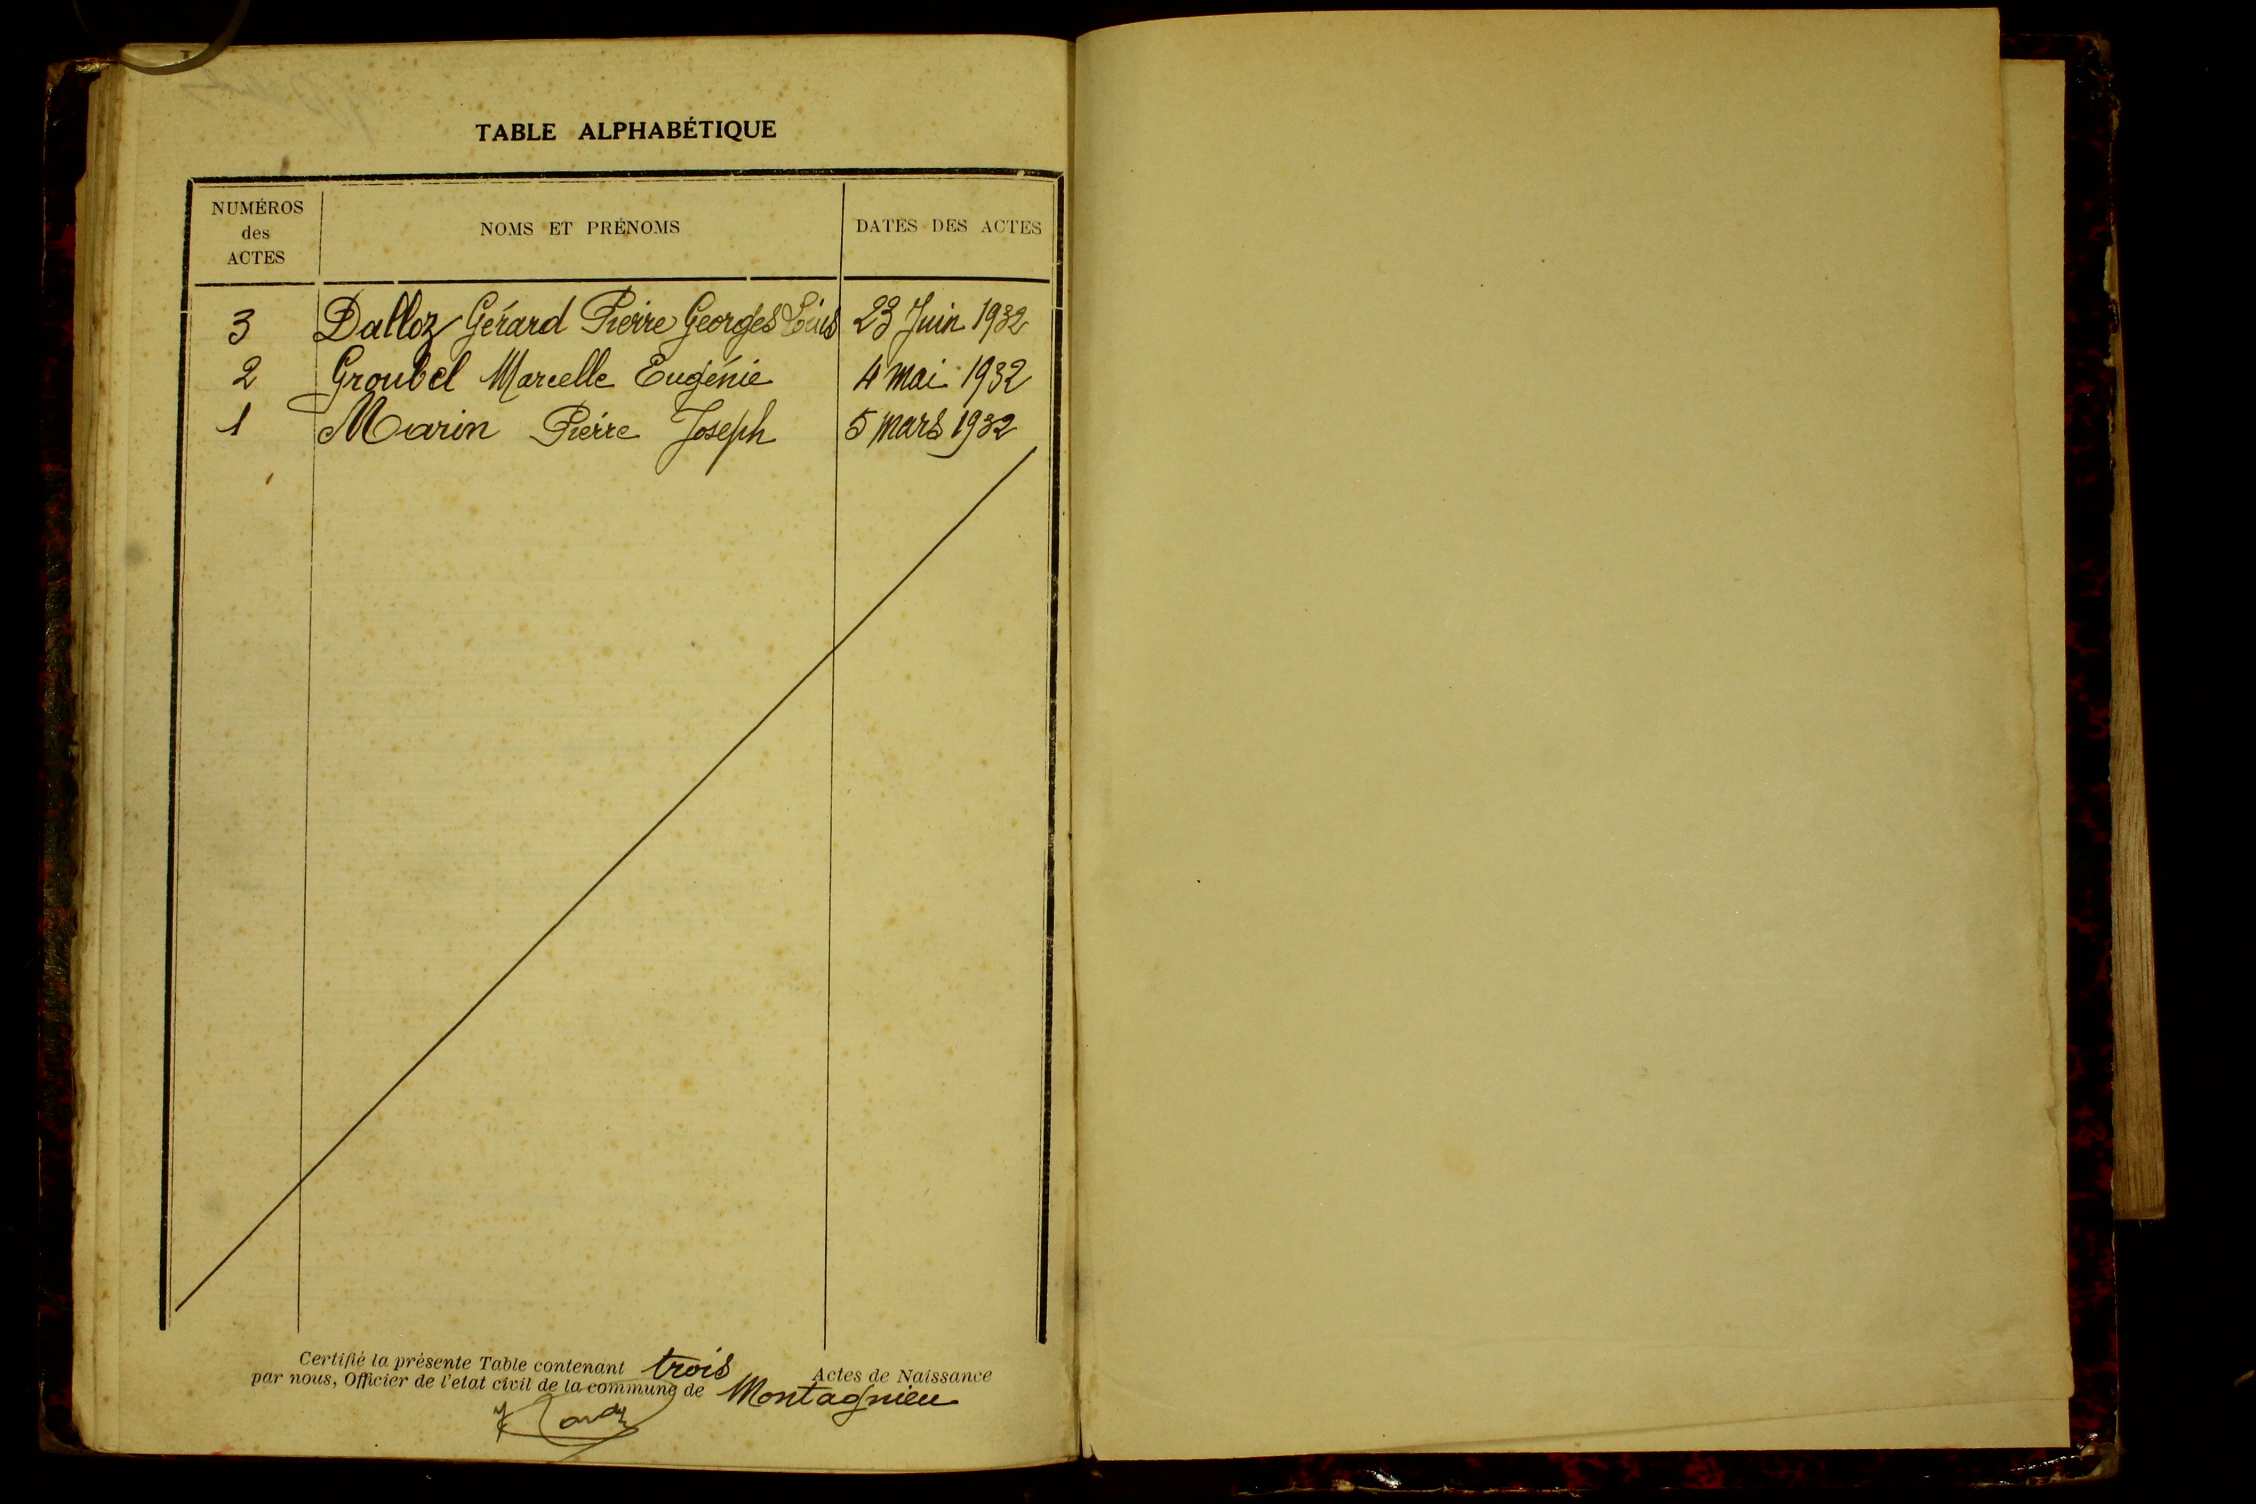 TABLE ALPHABÉTIQUE
NUMÉROS
des
ACTES
NOMS ET PRÉNOMS
DATES DES ACTES
3 Dalloz Gérard Pierre Georges 23 Juin 1932
2 Groubel Marcelle Eugénie 4 mai 1932
1 Marin Pierre Joseph 5 mars 1932
Certifié la présente Table contenant trois Actes de Naissance
par nous, Officier de l'etat civil de la commune de Montagnieu